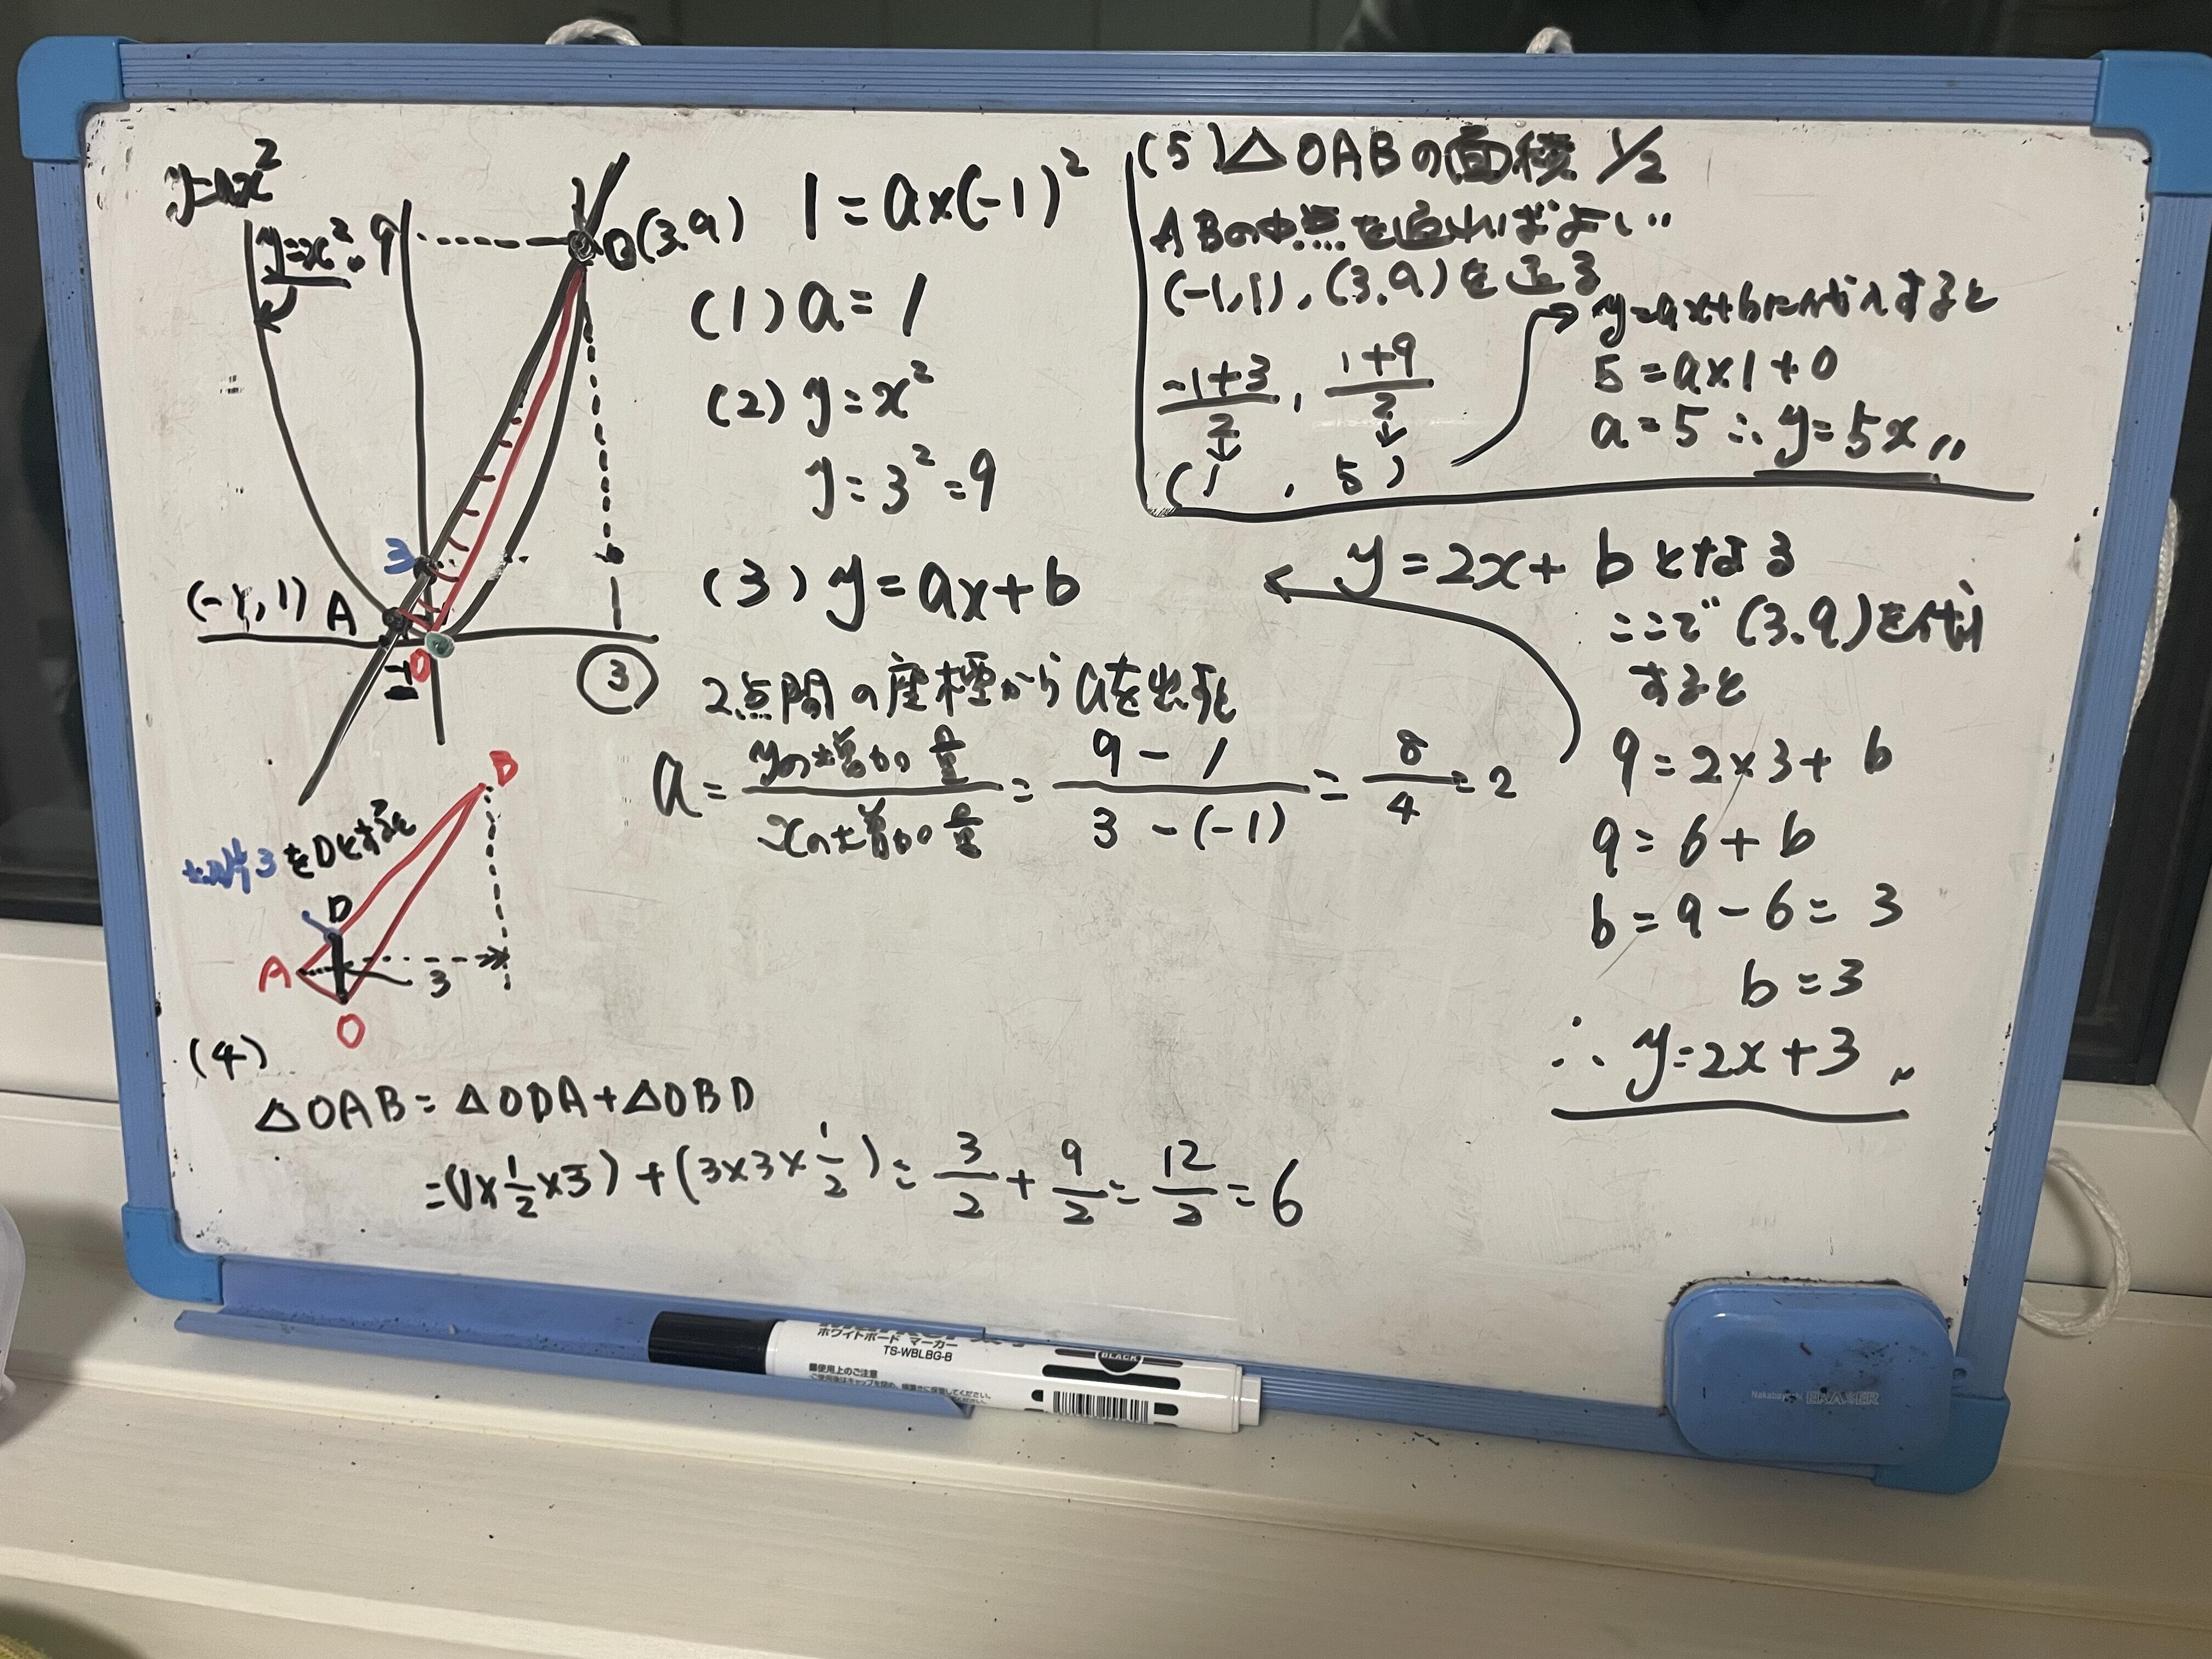 y=ax²
y=x²
9
B(3.9)
3
(-1,1) A
-1
O
3
B
切片3をDとすると
D
A
3
O
1=a×(-1)²
(1) a=1
(2) y=x²
y=3²=9
(3) y=ax+b
2点間の座標からaを出すと
a=yの増加量/xの増加量=9-1/3-(-1)=8/4=2
(4)
△OAB=△ODA+△OBD
=(1×1/2×3)+(3×3×1/2)=3/2+9/2=12/2=6
(5)△OABの面積 1/2
ABの中点を通ればよい
(-1,1),(3.9)を通る
-1+3/2, 1+9/2
(1, 5)
y=ax+bに代入すると
5=a×1+0
a=5 ∴ y=5x
y=2x+bとなる
ここで(3.9)を代入
すると
9=2×3+b
9=6+b
b=9-6=3
b=3
∴ y=2x+3
ホワイトボード マーカー
TS-WBLBG-B
BLACK
■使用上のご注意
ERASER